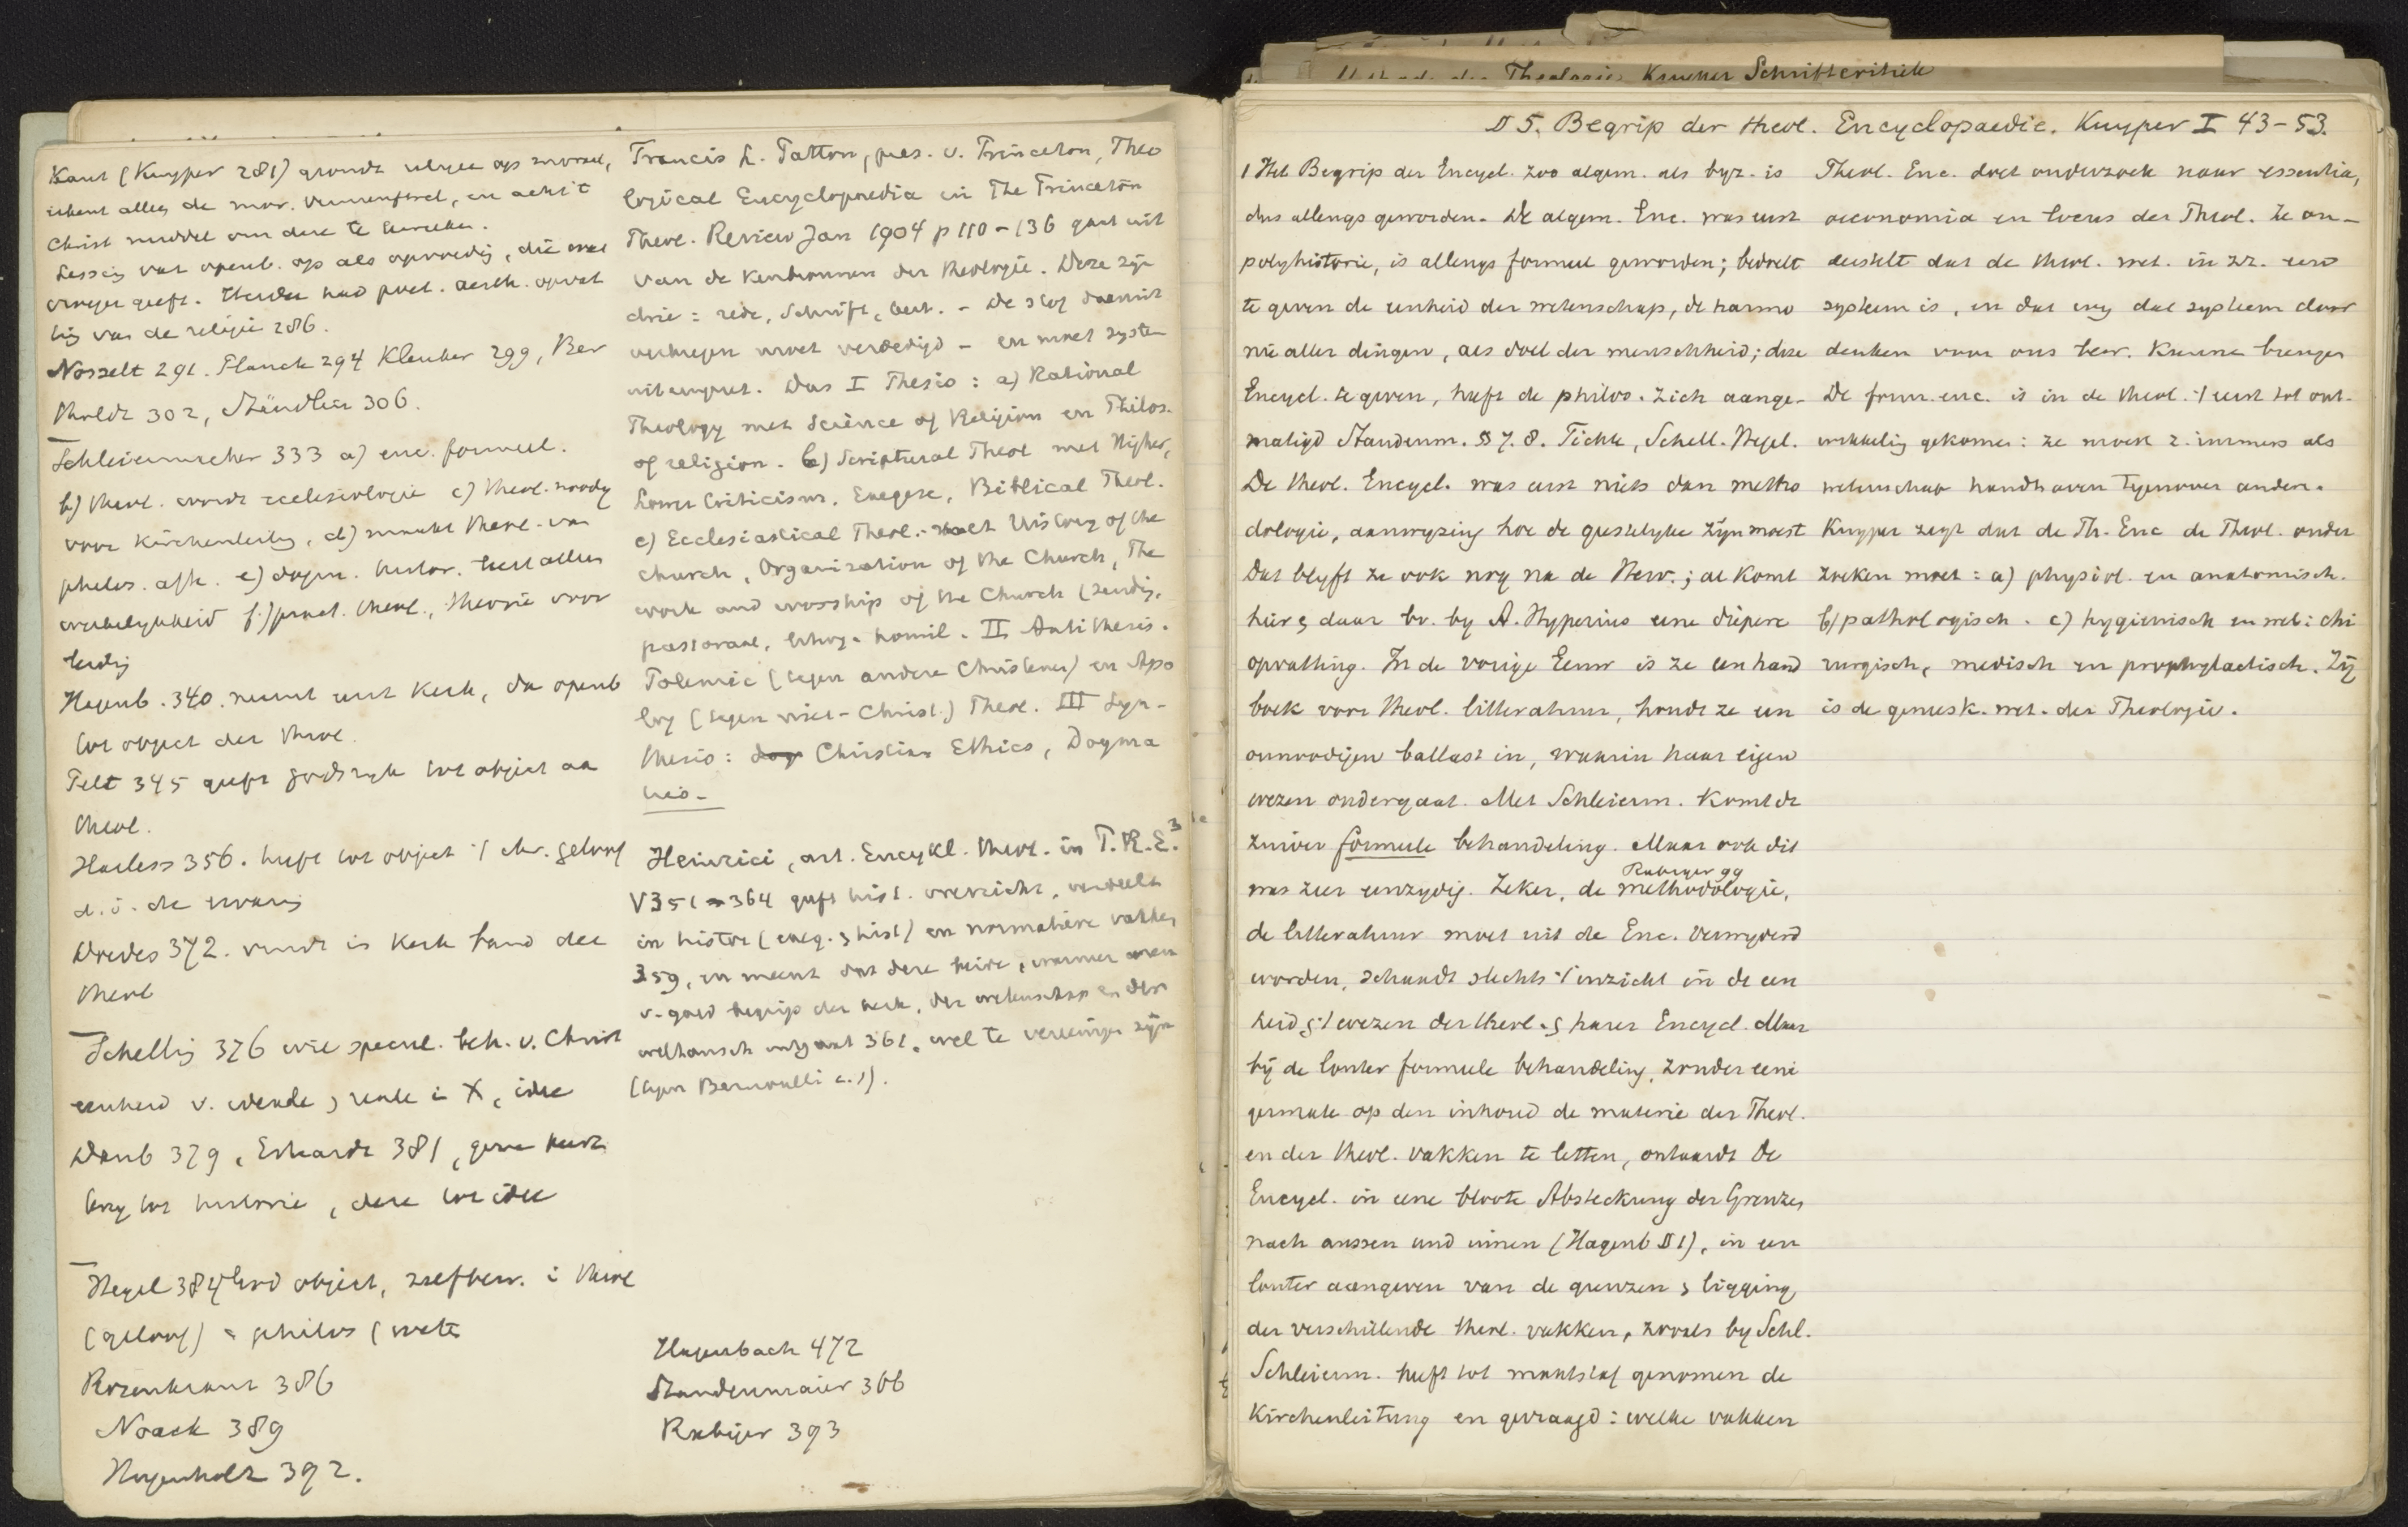 Kant (Kuyper 281) grondt religie op moraal,
erkent alleen de mor. Vernunftrel., en acht 't
Christ. middel om deze te bereiken.
Lessing vat openb. op als opvoeding, die
vroeger geeft. Herder had poet. aesth. opvat
ting van de religie 286.
Nösselt 291. Planck 294 Kleuker 299, Ber
tholdt 302, Stäudlin 306.
Schleiermacher 333 a) enc. formeel.
b) theol. wordt ecclesiologie c) theol. noodig
voor Kirchenleitung, d) maakt theol. van
philos. afh. e) dogm. histor. leer aller
f) pract. theol., theorie voor
leiding
Hagenb. 340. neemt eerst Kerk, dan openb
tot object der theol.
Pelt 345 geeft Godsrijk tot object aan
theol.
Harless 356. heeft tot object 't chr. geloof
d. i. de ervaring
Doedes 372. vindt in Kerk band der
theol
Schelling 376 wil specul. beh. v. Christ
eenheid v. ideale & reale in X, idee
Daub 379, Erhardt 381, gene
tot historie, deze tot idee
Hegel 384 God object, zelfbew. in theol
(geloof) = philos (weten
Rosenkranz 386
Noack 389
Hugenholtz 392.
Francis L. Patton, pres. v. Princeton, Theo
logical Encyclopaedia in The Princeton
Theol. Review Jan 1904 p 110-136 gaat uit
van de kenbronnen der theologie. Deze zijn
drie: rede, Schrift, kerk. - De stof daaruit
verkregen moet verdedigd - en moet syste
uiteengezet. Dus I Thesis: a) Rational
Theology met Science of Religion en Philos.
of religion. b) Scriptural Theol met Higher,
Lower Criticism. Exegese, Biblical Theol.
c) Ecclesiastical Theol.: met History of the
church, Organization of the Church, The
work and worship of the Church (zending,
pastorale, liturg. homil. II Antithesis.
Polemic (tegen andere Christenen) en Apo
log (tegen niet-Christ.) Theol. III Syn-
thesis: dog Christian Ethics, Dogma
tics -
Heinrici, art. Encykl. theol. in P.R.E.3
V 351-364 geeft hist. overzicht, verdeelt
in histor (exeg. & hist) en normatieve vakken
359, en meent dat deze beide, wanneer men
v. goed begrip der kerk, der wetenschap en der
uitgaat 361, wel te vereenigen zijn
(tegen Bernoulli e.a.).
Hagenbach 472
Staudenmaier 366
Rabiger 393
Methode der Theologie Kuenen Schriftcritiek
§ 5. Begrip der theol. Encyclopaedie. Kuyper I 43-53.
1 Het Begrip der Encycl. zoo algem. als byz. is
dus allengs geworden. De algem. Enc. was eerst
polyhistorie, is allengs formeel geworden; bedoelt
te geven de eenheid der wetenschap, de harmo
nie aller dingen, als doel der menschheid; deze
Encycl. te geven, heeft de philos. zich aange-
matigd Staudenm. § 7. 8. Fichte, Schell. Hegel.
De theol. Encycl. was eerst niets dan metho
dologie, aanwyzing hoe de geestelyke zyn moest
Dat blyft ze ook nog na de Herv.; al komt
hier & daar bv. by A. Hyperius eene diepere
opvatting. In de vorige Eeuw is ze een hand
boek voor theol. litteratuur, houdt ze een
onnoodigen ballast in, waarin haar eigen
wezen ondergaat. Met Schleierm. Komt de
zuiver formeele behandeling. Maar ook dit
was zeer eenzydig. Zeker, de methodologie, Rabiger 99
de litteratuur moet uit de Enc. verwyderd
worden, schaadt slechts 't inzicht in de een
heid & 't wezen der theol. & harer Encycl. Maar
bij de louter formeele behandeling, zonder eeni
germate op den inhoud de materie der Theol.
en der theol. vakken te letten, ontaardt De
Encycl. in eene bloote Absteckung der Grenzen
nach aussen und innen (Hagenb § 1), in een
louter aangeven van de grenzen & ligging
der verschillende theol. vakken, zooals by Schl.
Schleierm. heeft tot maatstaf genomen de
Kirchenleitung en gevraagd: welke vakken
Theol. Enc. doet onderzoek naar essentia,
oeconomia en locus der Theol. Ze on-
derstelt dat de theol. wet. in zz. een
systeem is, en dat wij dat systeem door
denken voor ons bew. Kunnen brengen
De form. enc. is in de theol. 't eerst tot ont-
wikkeling gekomen: ze moest z. immers als
wetenschap handhaven tegenover andere.
Kuyper zegt dat de Th. Enc de Theol. onder
zoeken moet: a) physiol. en anatomisch.
b) pathologisch. c) hygienisch en wel: chi
rurgisch, medisch en prophylactisch. Zij
is de geneesk. wet. der Theologie.